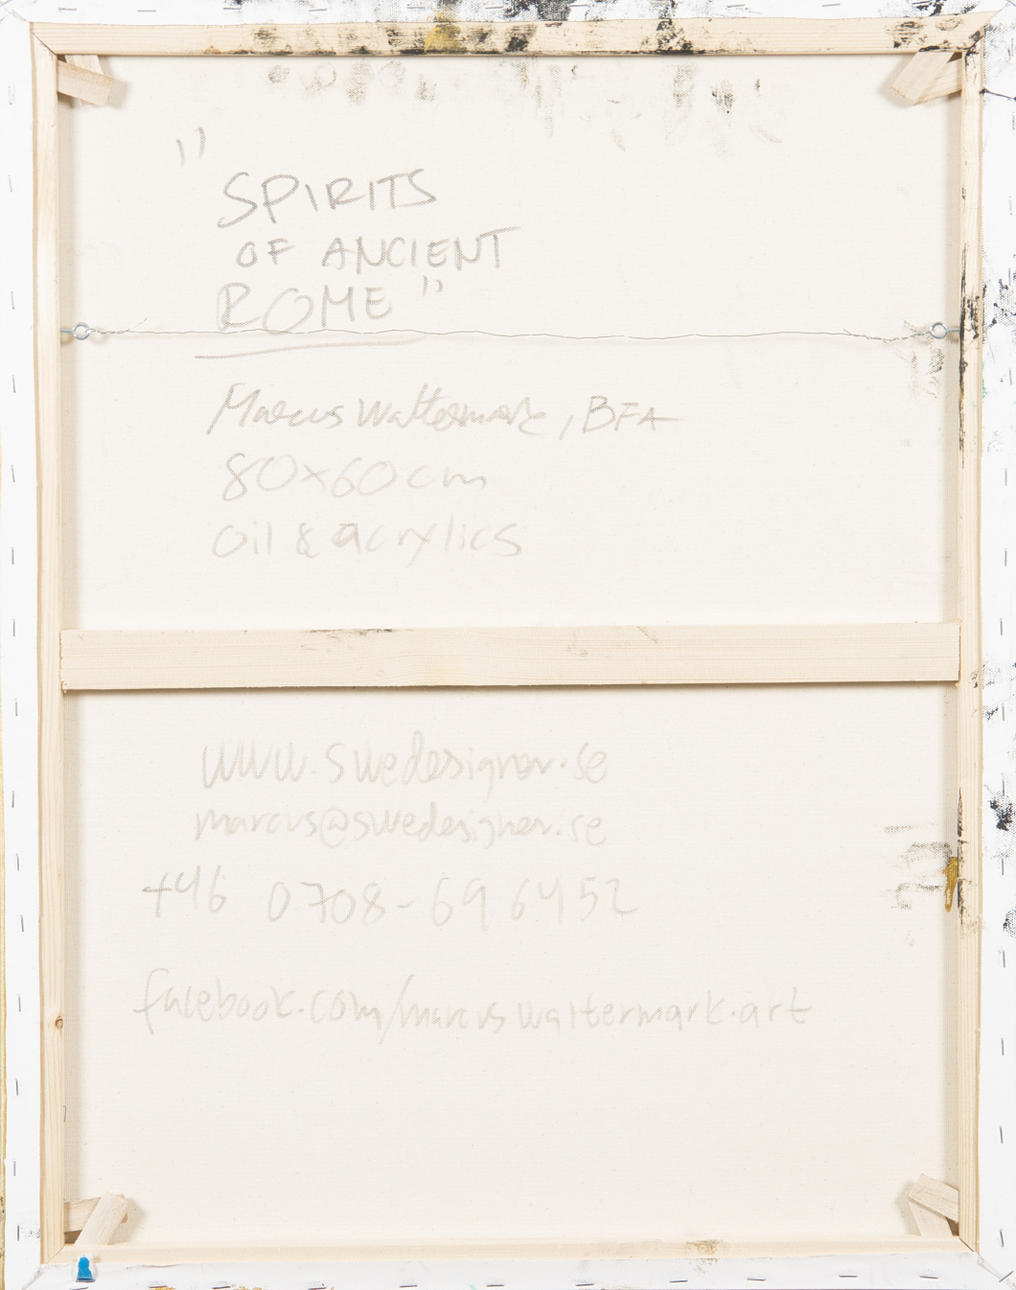 "SPIRITS
OF ANCIENT
ROME"
Marcus Waltermark, BFA
80x60 cm
oil & acrylics
www.swedesigner.se
marcus@swedesigner.se
+46 0708-69 64 52
facebook.com/marcuswaltermark.art